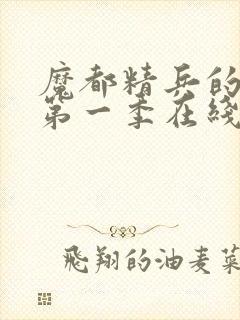 魔都精兵的
第一季在綫
飛翔的油麦菜